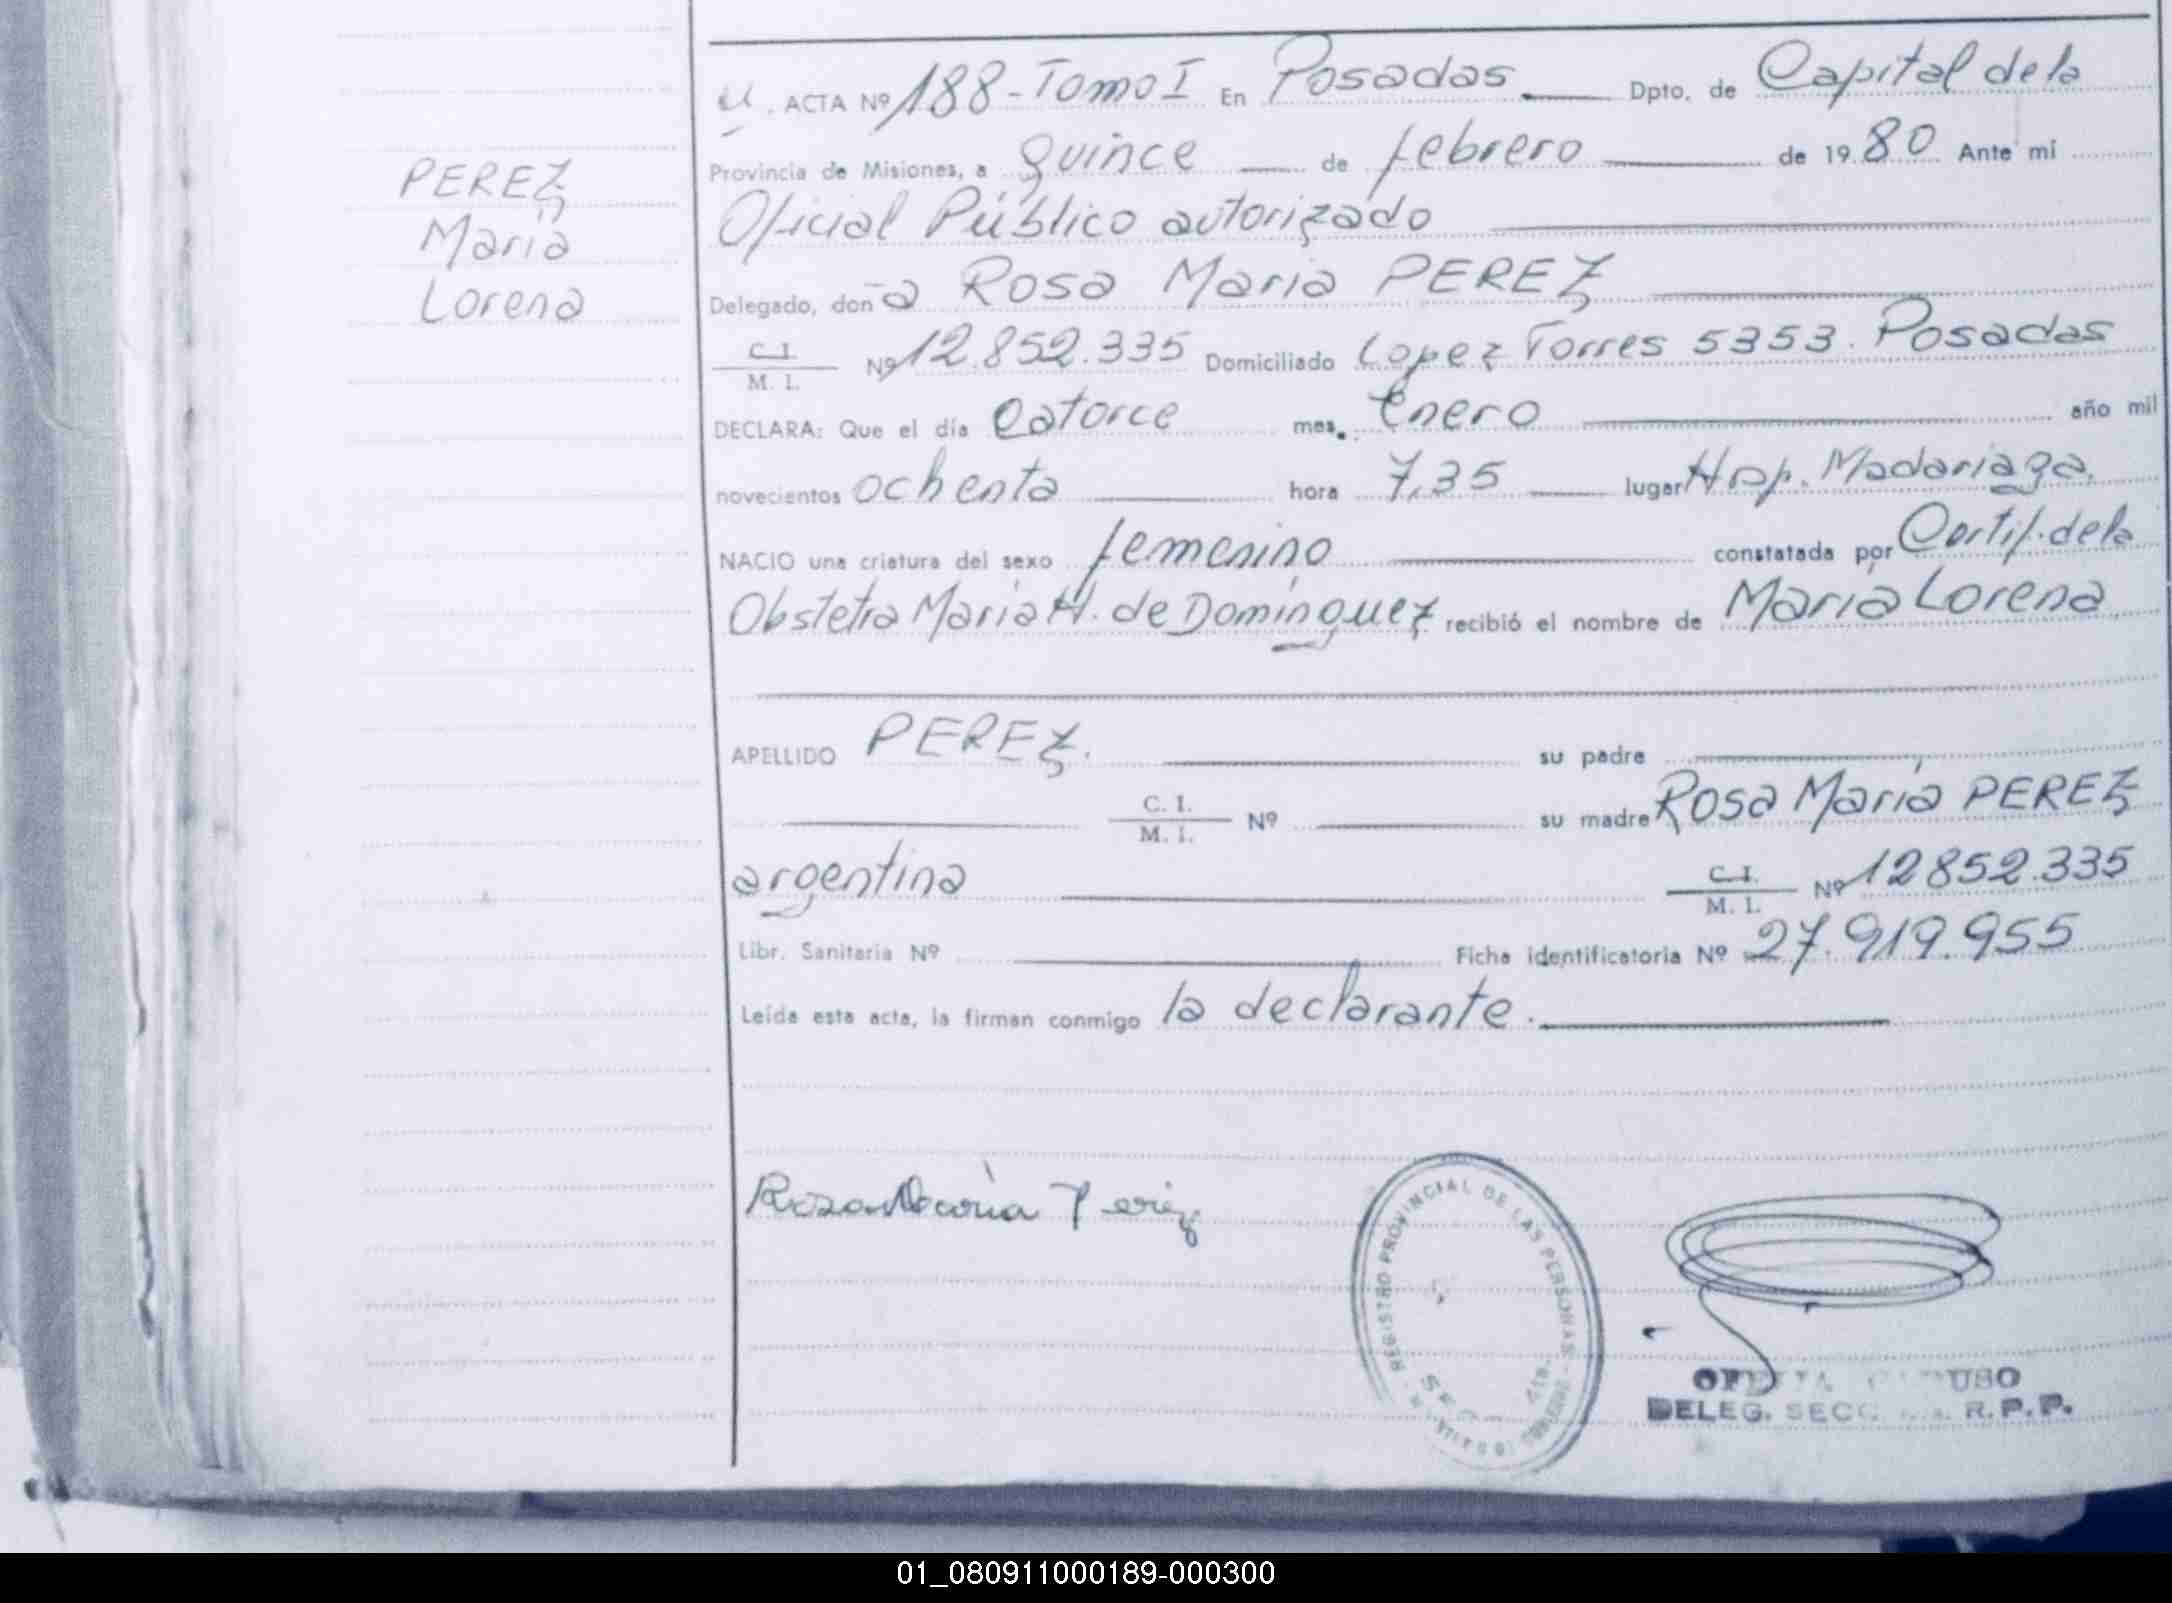 PEREZ
María
Lorena
ACTA Nº 188 - Tomo I En Posadas Dpto. de Capital de la
Provincia de Misiones, a quince de febrero de 1980 Ante mí
Oficial Público autorizado
Delegado, doña Rosa María PEREZ
C. I.
M. I. Nº 12.852.335 Domiciliado Lopez Torres 5353. Posadas
DECLARA: Que el día Catorce mes. Enero año mil
novecientos ochenta hora 7,35 lugar Hosp. Madariaga,
NACIO una criatura del sexo femenino constatada por Certif. de la
Obstetra María H. de Domínguez recibió el nombre de María Lorena,
APELLIDO PEREZ. su padre
C. I.
M. I. Nº su madre Rosa María PEREZ
argentina C. I.
M. I. Nº 12852.335
Libr. Sanitaria Nº Ficha identificatoria Nº 27.919.955
Leída esta acta, la firman conmigo la declarante.
Rosa María Perez
REGISTRO PROVINCIAL DE LAS PERSONAS
DELEG. SECC. R. P. P.
01_080911000189-000300